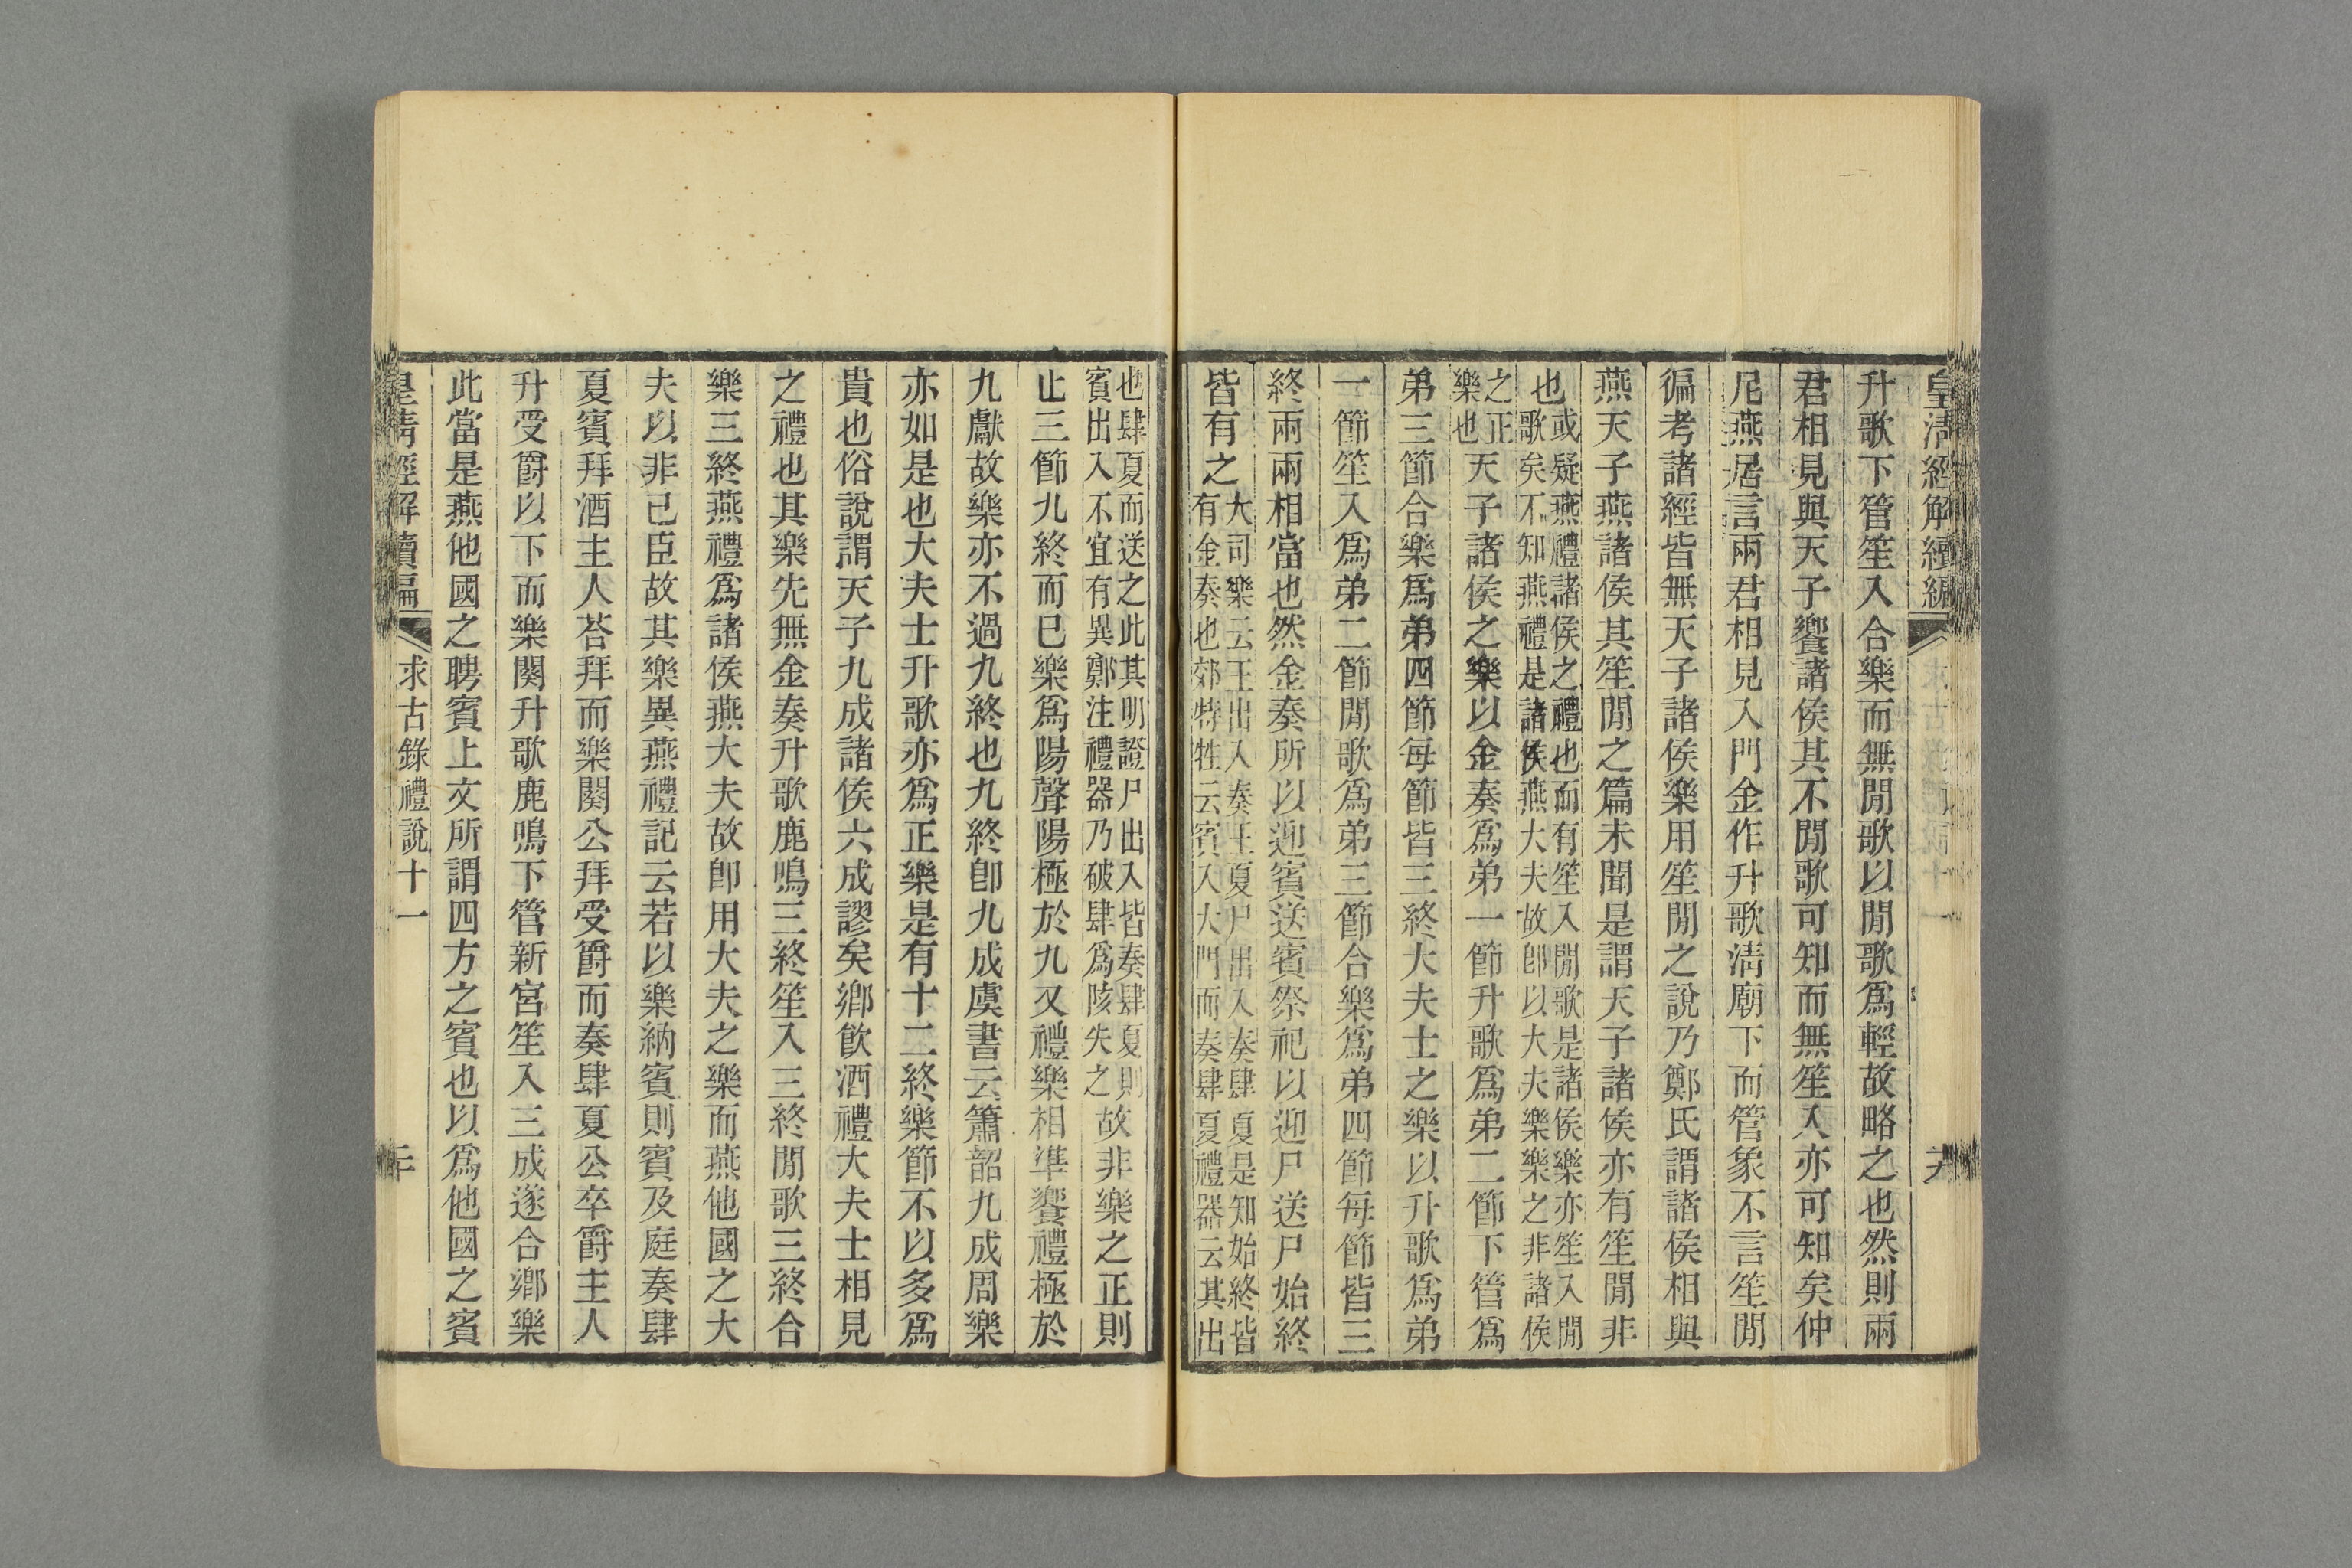 皇淸經解續編
升歌下管笙入合樂而無閒歌以閒歌爲輕故略之也然則兩
君相見與天子饗諸侯其不閒歌可知而無笙入亦可知矣仲
尼燕居言兩君相見入門金作升歌淸廟下而管象不言笙閒
徧考諸經皆無天子諸侯樂用笙閒之說乃鄭氏謂諸侯相與
燕天子燕諸侯其笙閒之篇未聞是謂天子諸侯亦有笙閒非
也
或疑燕禮諸侯之禮也而有笙入閒歌是諸侯樂亦笙入閒
歌矣不知燕禮是諸侯燕大夫故卽以大夫樂樂之非諸侯
之正
樂也
天子諸侯之樂以金奏爲弟一節升歌爲弟二節下管爲
弟三節合樂爲弟四節每節皆三終大夫士之樂以升歌爲弟
一節笙入爲弟二節閒歌爲弟三節合樂爲弟四節每節皆三
終兩兩相當也然金奏所以迎賓送賓祭祀以迎尸送尸始終
皆有之
大司樂云王出入奏王夏尸出入奏肆夏是知始終皆
有金奏也郊特牲云賓入大門而奏肆夏禮器云其出
也肆夏而送之此其明證尸出入皆奏肆夏則
賓出入不宜有異鄭注禮器乃破肆爲陔失之
故非樂之正則
止三節九終而已樂爲陽聲陽極於九又禮樂相準饗禮極於
九獻故樂亦不過九終也九終卽九成虞書云簫韶九成周樂
亦如是也大夫士升歌亦爲正樂是有十二終樂節不以多爲
貴也俗說謂天子九成諸侯六成謬矣鄉飮酒禮大夫士相見
之禮也其樂先無金奏升歌鹿鳴三終笙入三終閒歌三終合
樂三終燕禮爲諸侯燕大夫故卽用大夫之樂而燕他國之大
夫以非己臣故其樂異燕禮記云若以樂納賓則賓及庭奏肆
夏賓拜酒主人荅拜而樂闋公拜受爵而奏肆夏公卒爵主人
升受爵以下而樂闋升歌鹿鳴下管新宮笙入三成遂合鄉樂
此當是燕他國之聘賓上文所謂四方之賓也以爲他國之賓
皇淸經解續編
求古錄禮說十一